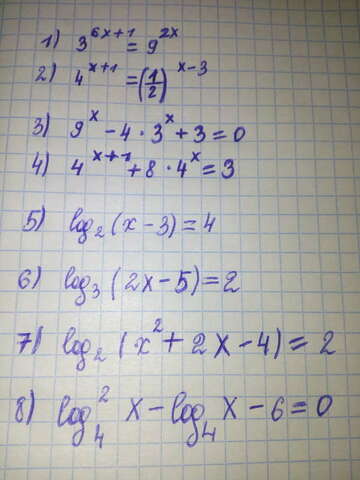 1) 3^{6x+1} = 9^{2x}
2) 4^{x+1} = (1/2)^{x-3}
3) 9^x - 4 · 3^x + 3 = 0
4) 4^{x+1} + 8 · 4^x = 3
5) log_2 (x - 3) = 4
6) log_3 (2x - 5) = 2
7) log_2 (x^2 + 2x - 4) = 2
8) log_4^2 x - log_4 x - 6 = 0